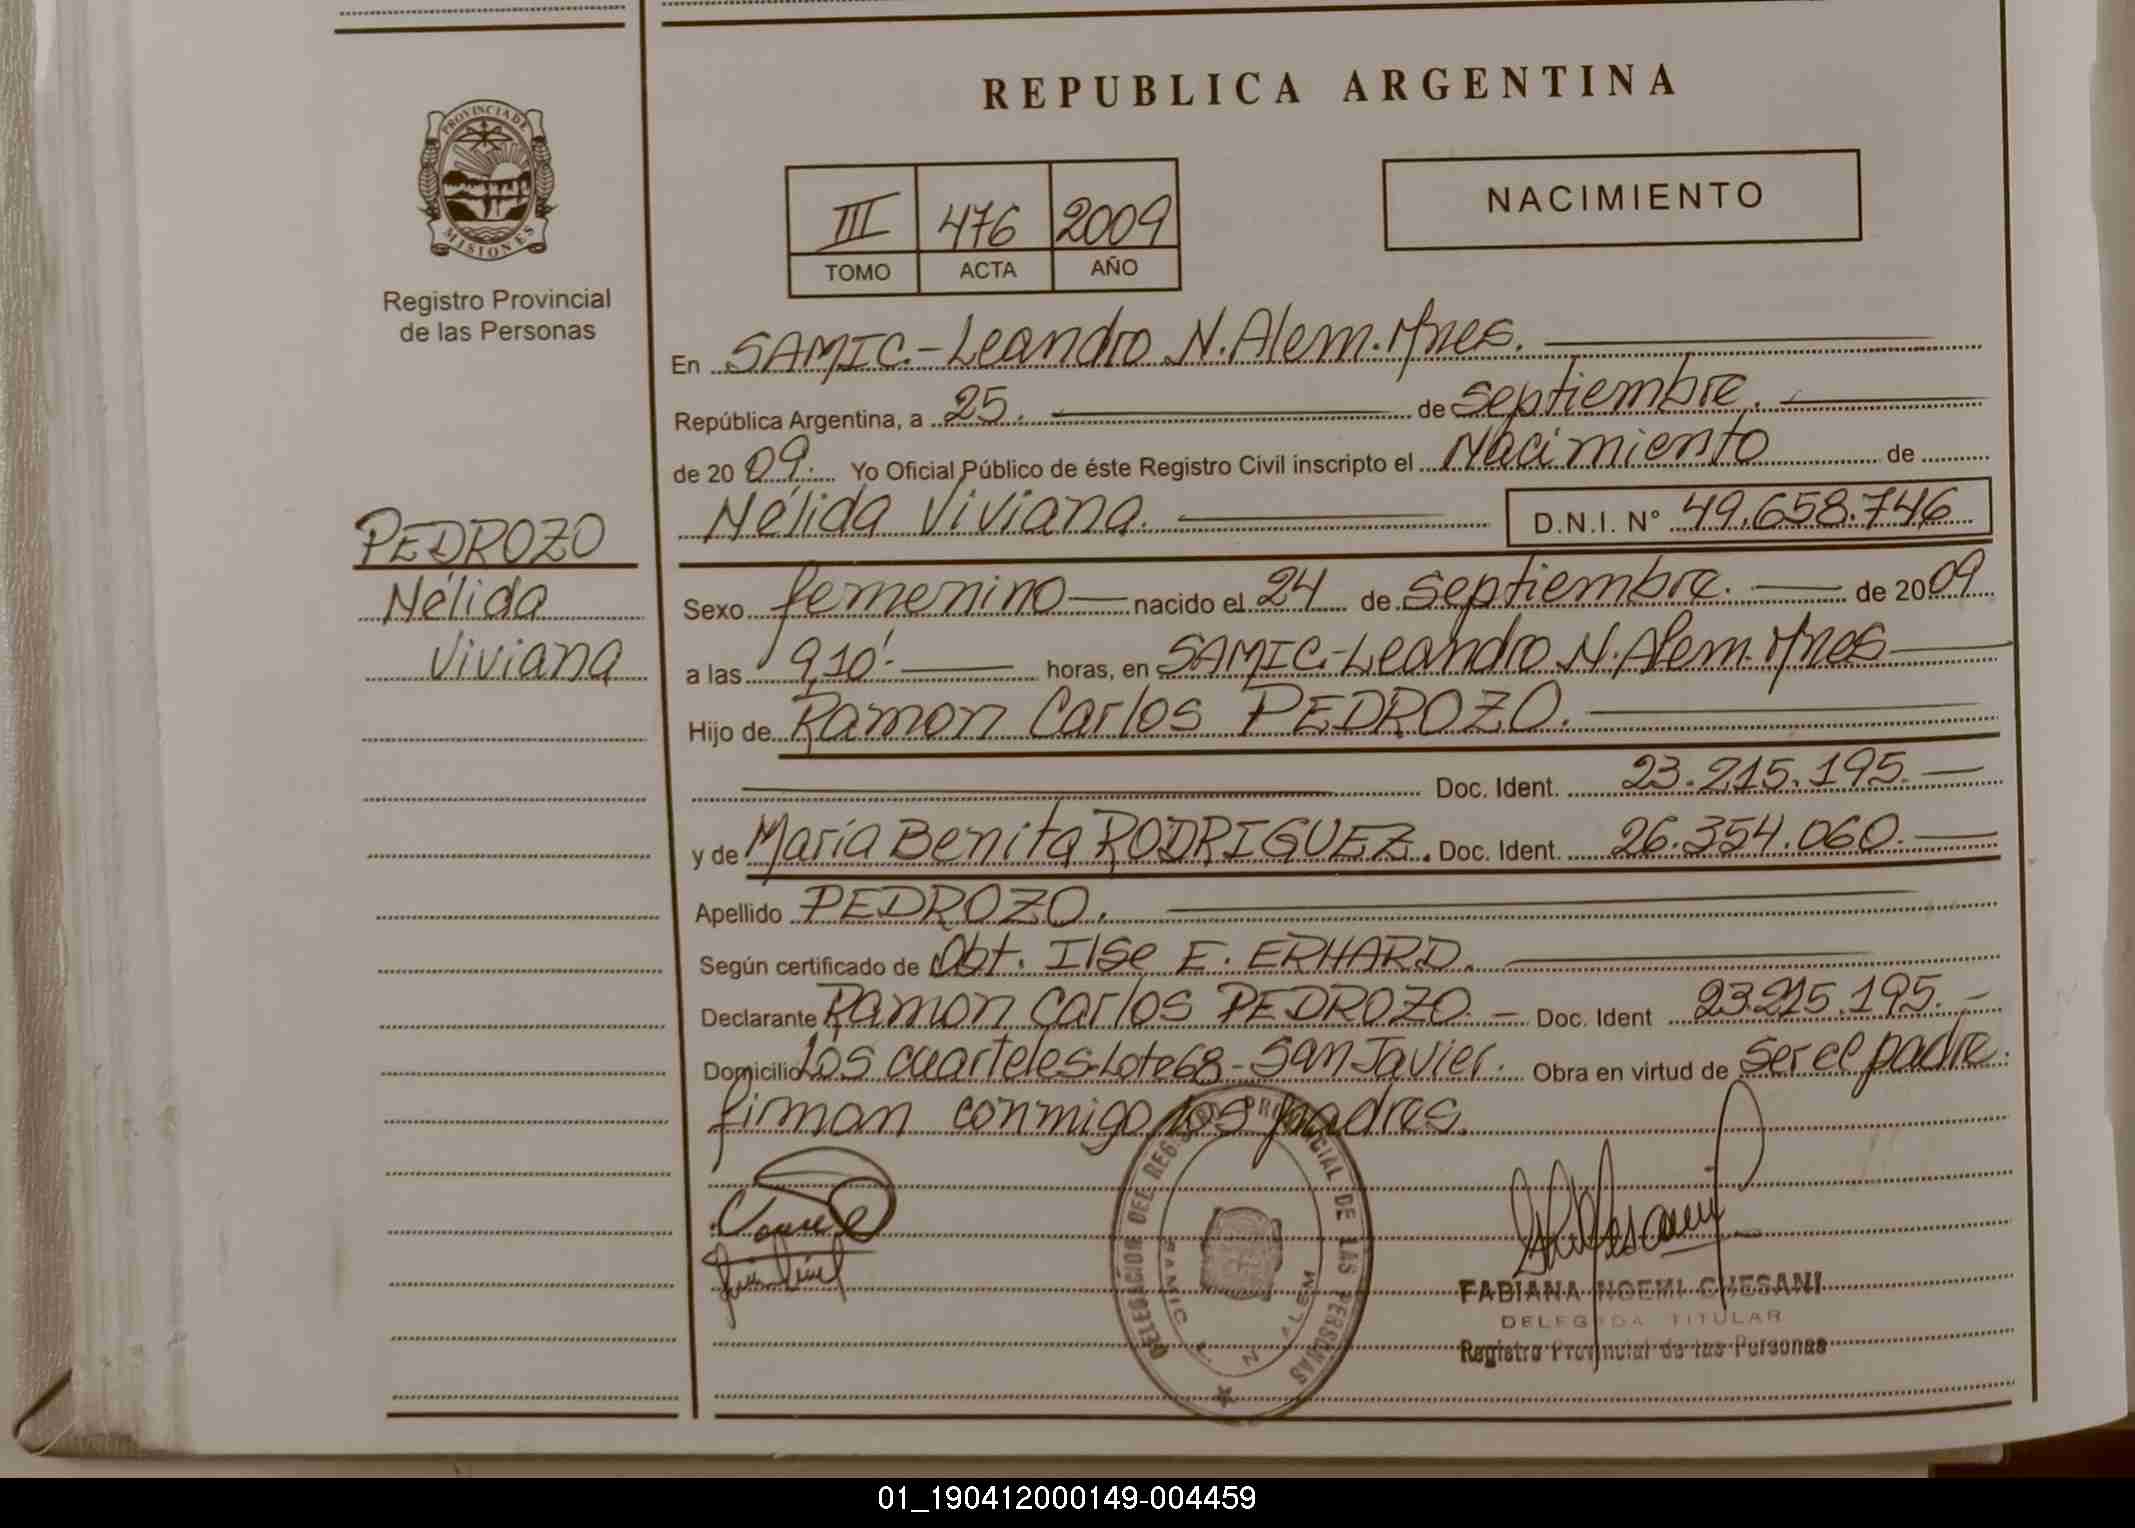 REPUBLICA ARGENTINA
PROVINCIA DE
MISIONES
Registro Provincial
de las Personas
III 476 2009
TOMO ACTA AÑO
NACIMIENTO
En SAMIC.-Leandro N. Alem. Mnes.
República Argentina, a 25. de septiembre.
de 20 09. Yo Oficial Público de éste Registro Civil inscripto el Nacimiento de
Nélida Viviana. D.N.I. N° 49.658.746
PEDROZO
Nélida
Viviana
Sexo femenino nacido el 24 de septiembre. de 2009
a las 9,10'. horas, en SAMIC.-Leandro N. Alem. Mnes
Hijo de Ramon Carlos PEDROZO.
Doc. Ident. 23.215.195.
y de María Benita RODRIGUEZ. Doc. Ident. 26.354.060.
Apellido PEDROZO.
Según certificado de Obt. Ilse E. ERHARD.
Declarante Ramon Carlos PEDROZO. Doc. Ident 23.215.195.
Domicilio Los cuarteles-Lote 68-San Javier. Obra en virtud de ser el padre.
firman conmigo los padres.
DELEGACION DEL REGISTRO PROVINCIAL DE LAS PERSONAS
SAMIC L. N. ALEM
FABIANA NOEMI CHESANI
DELEGADA TITULAR
Registro Provincial de las Personas
01_190412000149-004459